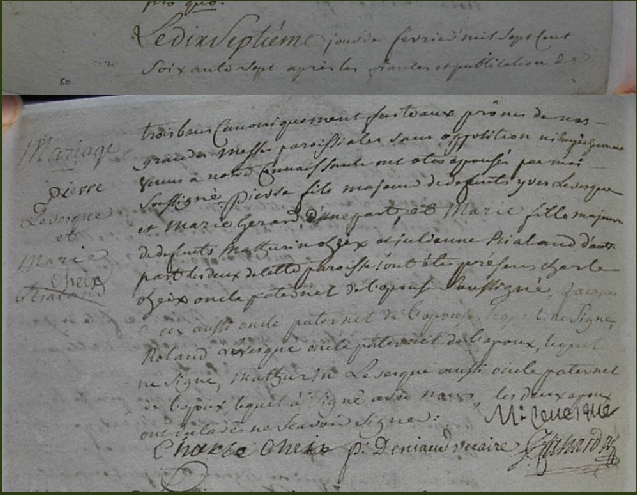 Le dix Septiéme jour de fevrier mil Sept Cent
Soixante Sept après les fiantes et publication de
trois bans Canoniquement faits aux prônes de nos
grandes messes paroissiales sans opposition ni
venus à notre Connaissance ont etés épousés par moi
Soussigné, pierre fils majeur de defunts yves Levesque
et Marie Gerard, d'une part, et Marie fille majeure
de defunts Mathurin Cheix et julienne Rialand d'autre
part les deux de cette paroisse, ont été présens charle
cheix oncle paternel de l'epouse Soussigné, jacque
cheix aussi oncle paternel de l'epouse lequel ne Signe,
Roland Levesque oncle paternel de l'epoux, lequel
ne Signe, Mathurin Levesque aussi oncle paternel
de l'epoux lequel à Signé avec nous, les deux epoux
ont declarés ne Scavoir Signer:
Mariage
pierre
Levesque
et
Marie
Cheix
M: Levesque
Charle Cheix p. Deniaud vicaire